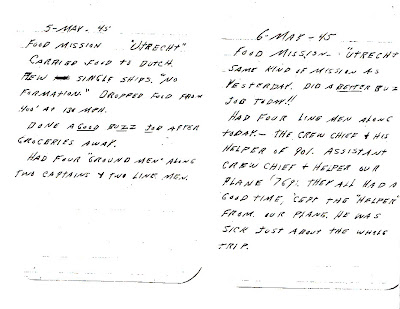 5-MAY-45
FOOD MISSION "UTRECHT"
CARRIED FOOD TO DUTCH.
FLEW SINGLE SHIPS. "NO
FORMATION." DROPPED FOOD FROM
400' AT 130 MPH.
DONE A GOOD BUZZ JOB AFTER
GROCERIES AWAY.
HAD FOUR GROUND MEN ALONG
TWO CAPTAINS & TWO LINE MEN.
6-MAY-45
FOOD MISSION- "UTRECHT
SAME KIND OF MISSION AS
YESTERDAY. DID A BETTER BUZ
JOB TODAY!!
HAD FOUR LINE MEN ALONG
TODAY.- THE CREW CHIEF & HIS
HELPER OF 901. ASSISTANT
CREW CHIEF & HELPER OUR
PLANE '769'. THEY ALL HAD A
GOOD TIME, 'CEPT THE "HELPER"
FROM OUR PLANE. HE WAS
SICK JUST ABOUT THE WHOLE
TRIP.